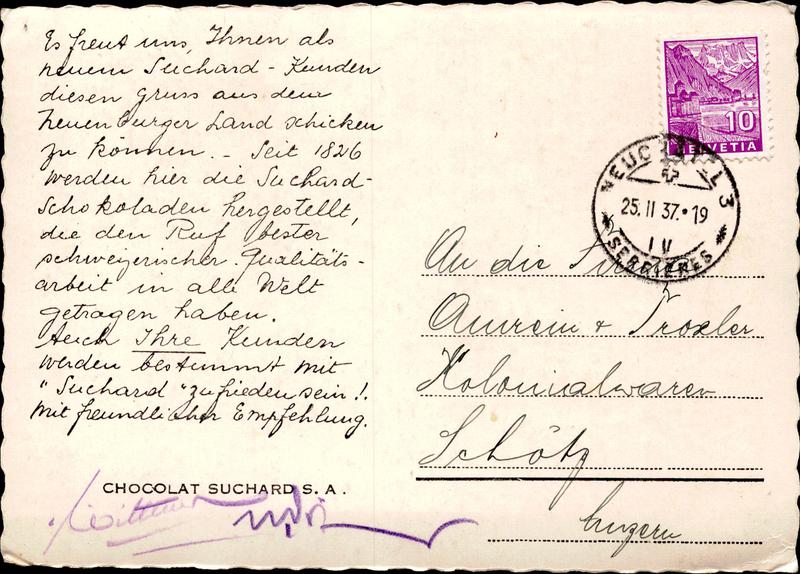 Es freut uns, Ihnen als
neuem Suchard - Kunden
diesen Gruss aus dem
Neuenburger Land schicken
zu können. - Seit 1826
werden hier die Suchard-
Schokoladen hergestellt,
die den Ruf bester
schweizerischer Qualitäts-
arbeit in alle Welt
getragen haben.
Auch Ihre Kunden
werden bestimmt mit
"Suchard" zufrieden sein!.
Mit freundlicher Empfehlung.
CHOCOLAT SUCHARD S.A.
10
HELVETIA
NEUCHATEL 3
25.II 37.•19
IV
SERRIERES
An die
Amrein & Troxler
Kolonialwaren
Schötz
Luzern